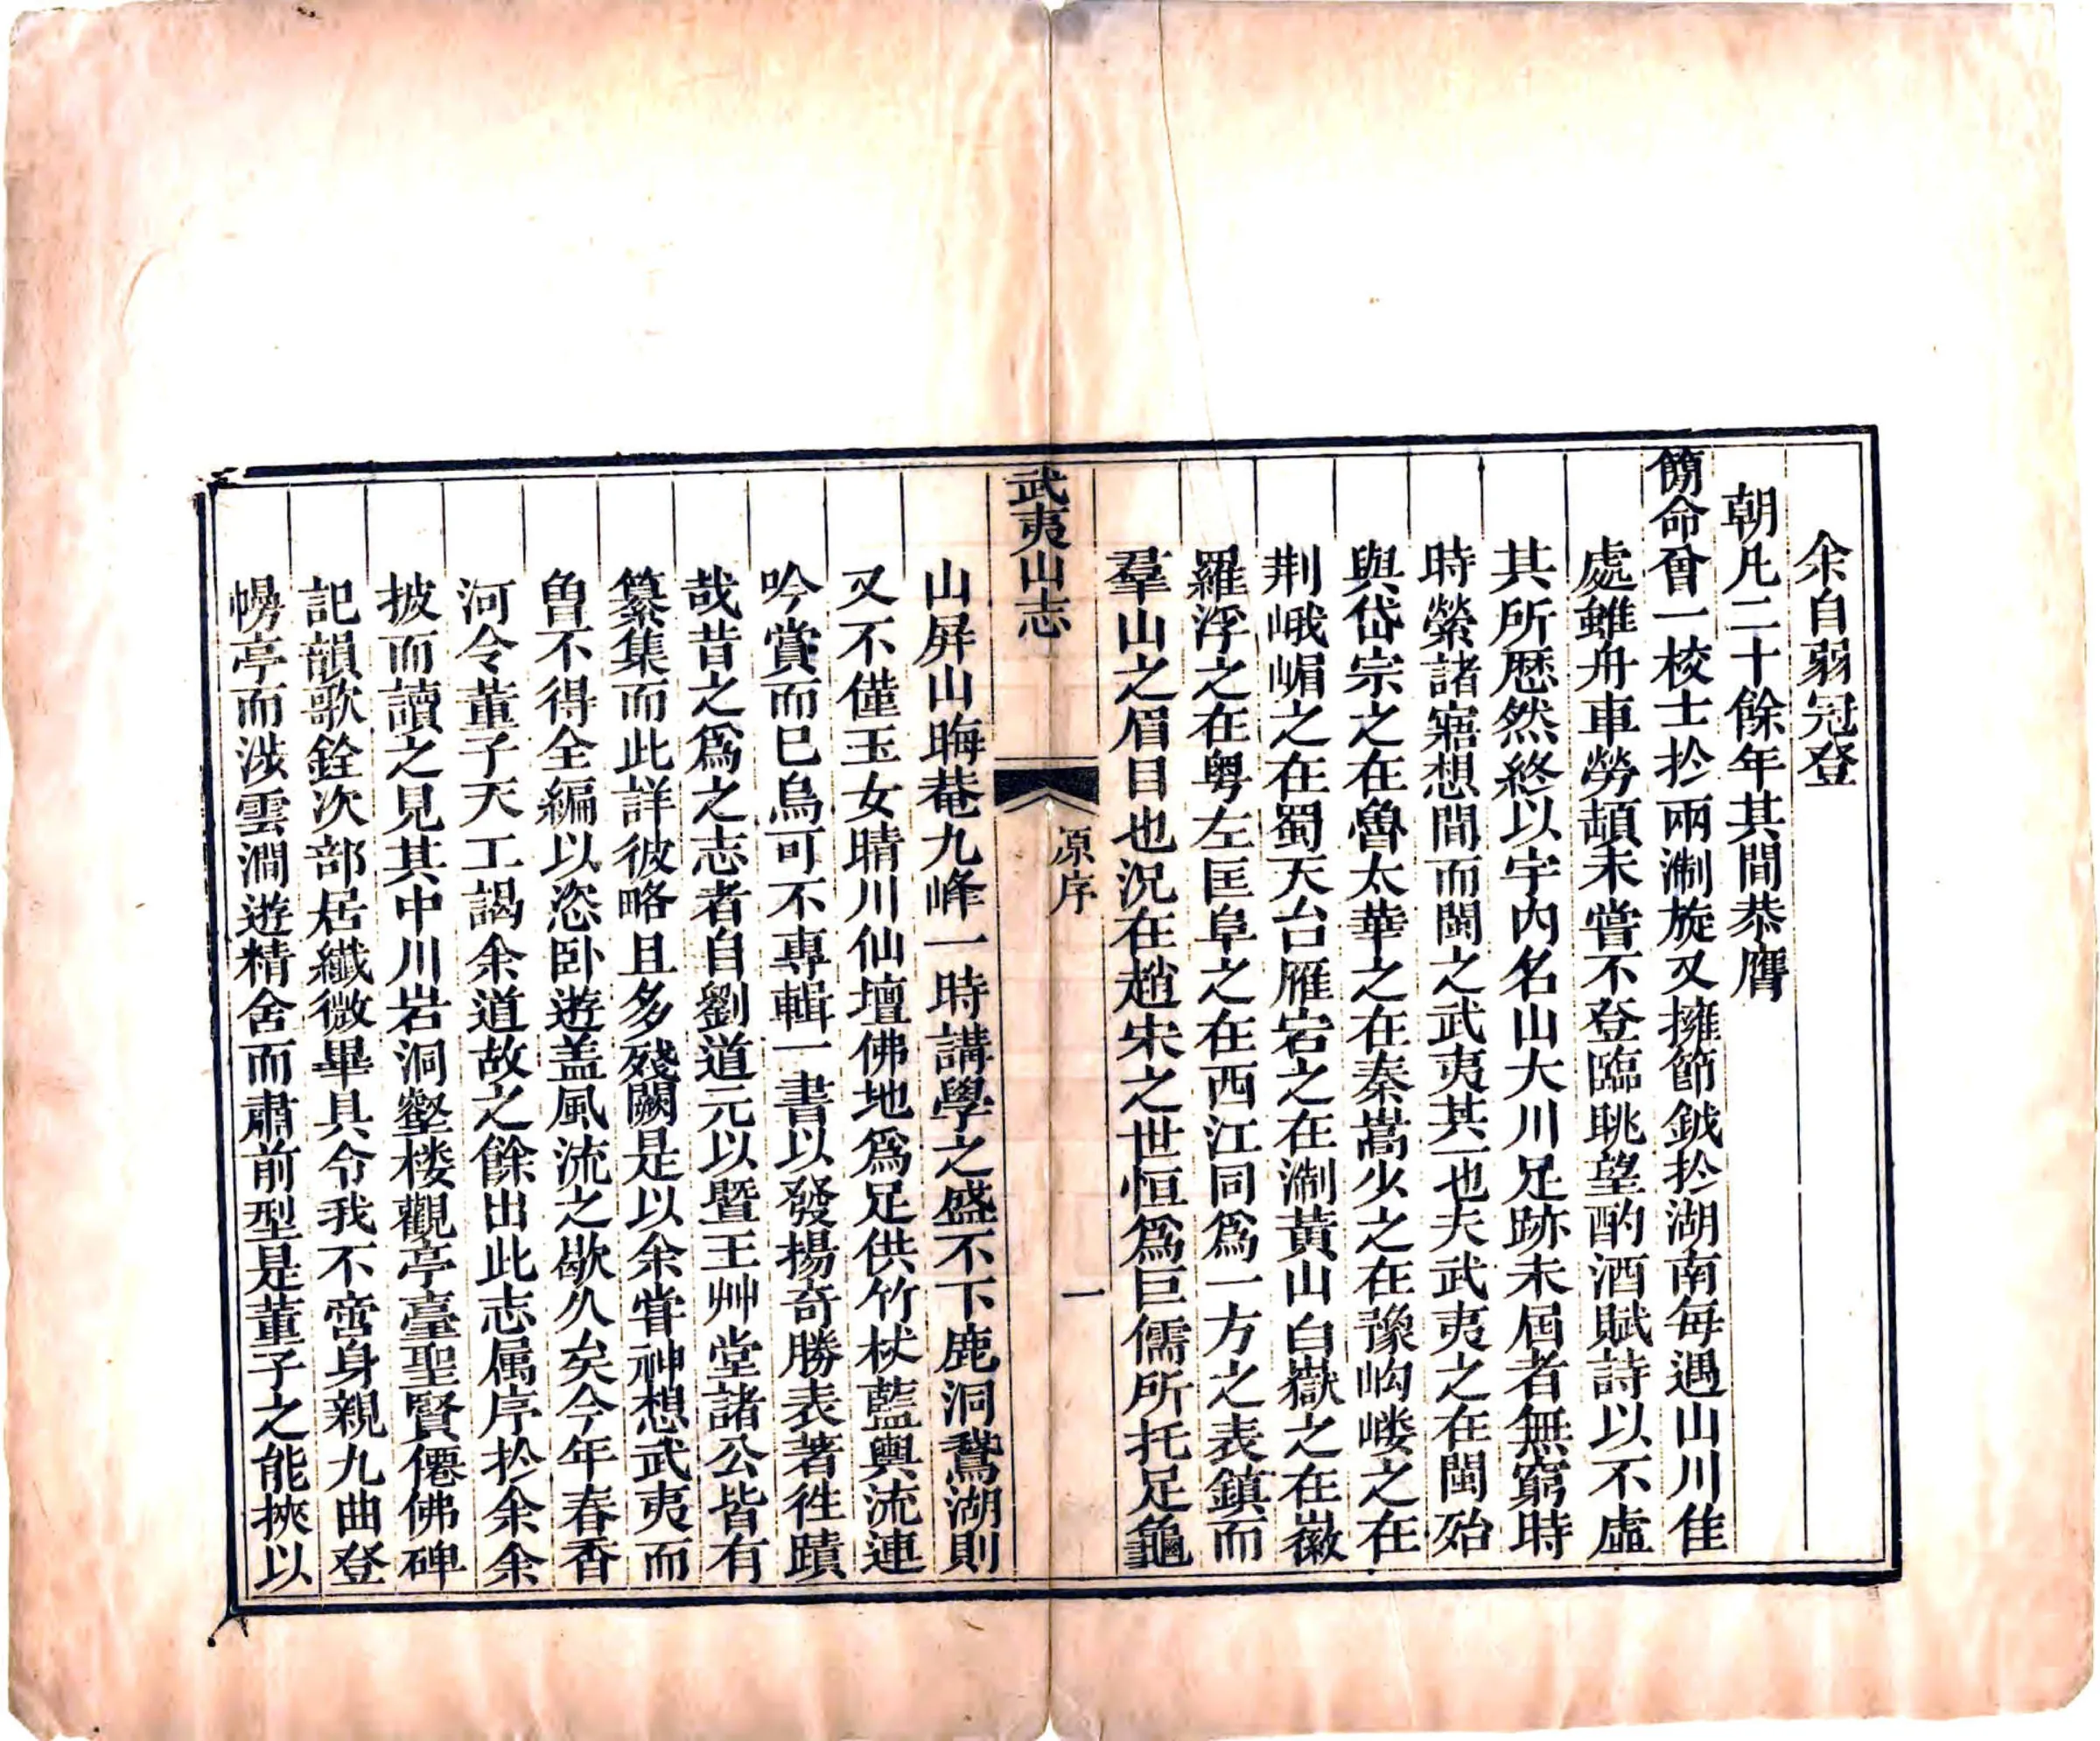 余自弱冠登
朝凡二十餘年其間恭膺
簡命曾一校士扵兩淛旋又擁節鉞扵湖南每遇山川佳
處雖舟車勞頓未嘗不登臨眺望酌酒賦詩以不虛
其所歷然終以宇内名山大川足跡未屆者無窮時
時縈諸寤想間而閩之武夷其一也夫武夷之在閩殆
與岱宗之在魯太華之在秦嵩少之在豫岣嶁之在
荆峨嵋之在蜀天台雁宕之在淛黃山白嶽之在徽
羅浮之在粤左匡阜之在西江同爲一方之表鎮而
羣山之眉目也況在趙宋之世恒爲巨儒所托足龜
武夷山志
原序
一
山屏山晦菴九峰一時講學之盛不下鹿洞鵞湖則
又不僅玉女晴川仙壇佛地爲足供竹杖藍輿流連
吟賞而已烏可不專輯一書以發揚奇勝表著徃蹟
哉昔之爲之志者自劉道元以曁王艸堂諸公皆有
纂集而此詳彼略且多殘闕是以余嘗神想武夷而
曾不得全編以恣卧遊盖風流之歇久矣今年春香
河令董子天工謁余道故之餘出此志属序扵余余
披而讀之見其中川岩洞壑楼觀亭臺聖賢僊佛碑
記韻歌銓次部居纖微畢具令我不啻身親九曲登
幔亭而涉雲澗遊精舍而肅前型是董子之能挾以